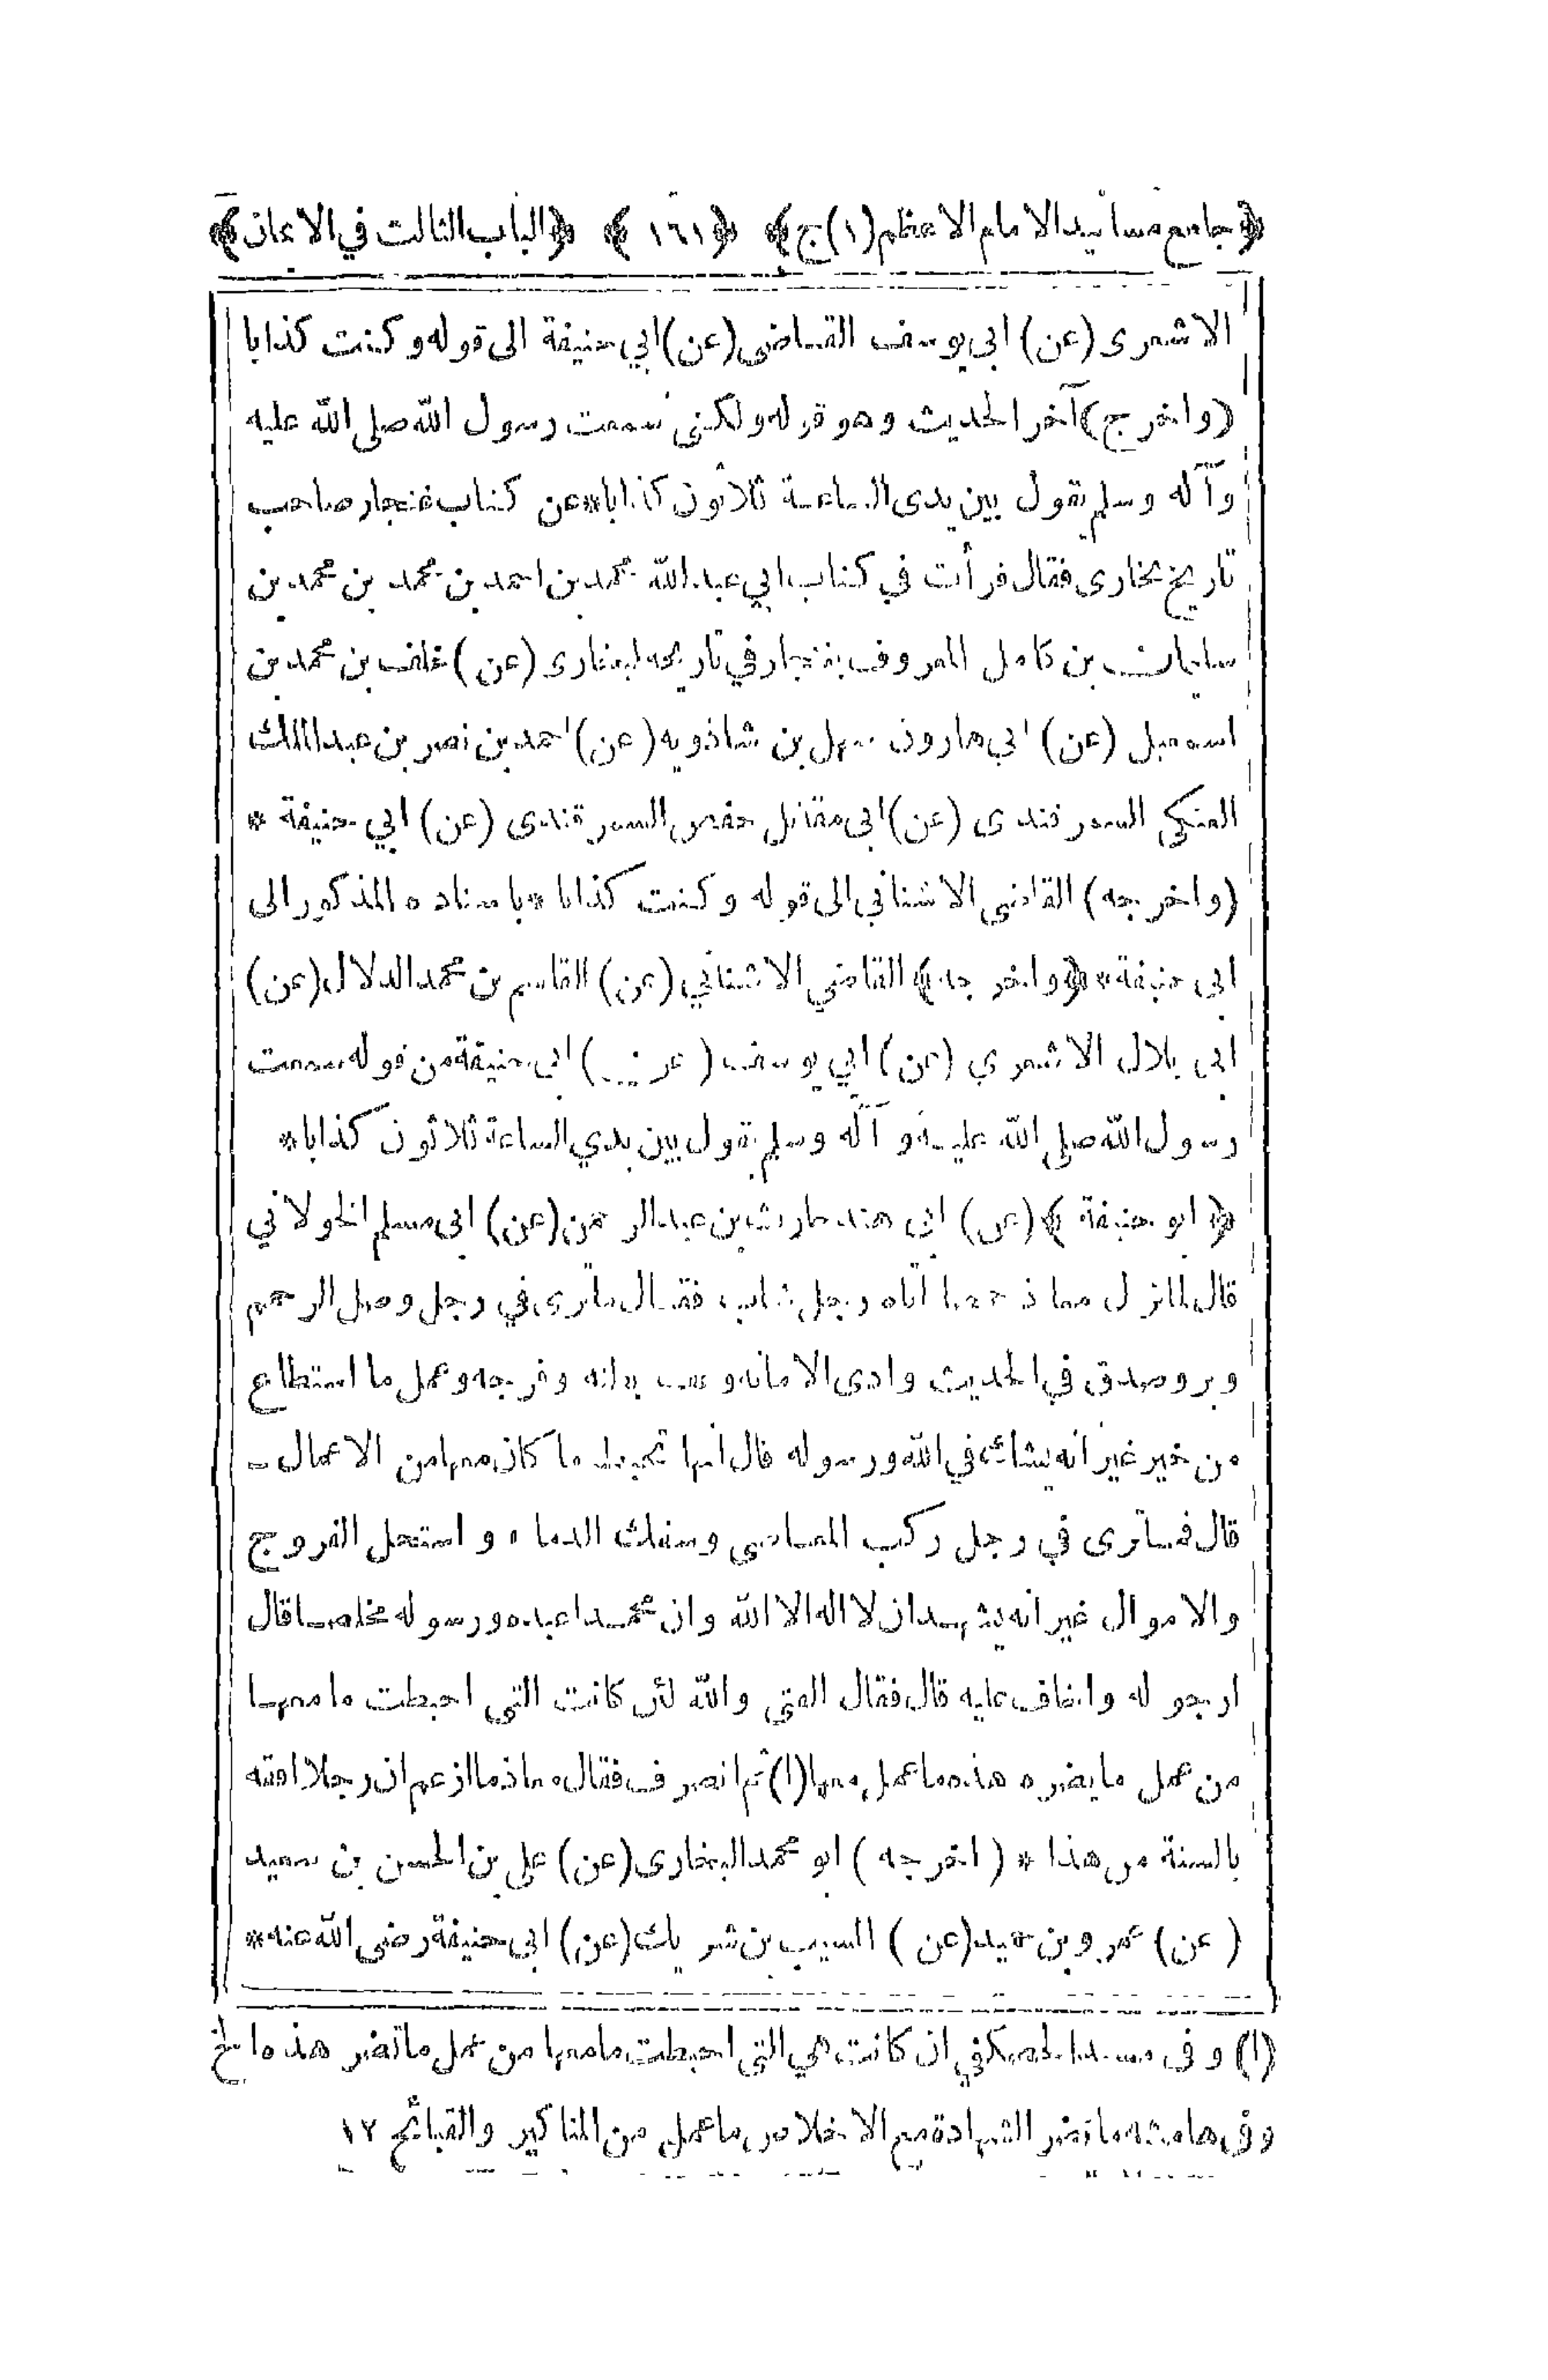 ﴿جامع مسانيد الامام الاعظم (١) ج﴾ ﴿١٦١﴾ ﴿الباب الثالث في الايمان﴾
الاشعرى (عن) ابى يوسف القاضى (عن) ابي حنيفة الى قوله وكنت كذابا
(واخرج) آخر الحديث وهو قوله ولكنى سمعت رسول الله صلى الله عليه
وآله وسلم يقول بين يدى الساعة ثلاثون كذابا * عن كتاب غنجار صاحب
تاريخ بخارى فقال قرأت في كتاب ابي عبد الله محمد بن احمد بن محمد بن محمد بن
سليمان بن كامل المعروف بغنجار في تاريخه لبخارى (عن) خلف بن محمد بن
اسمعيل (عن) ابي هارون سهل بن شاذويه (عن) احمد بن نصر بن عبد الملك
العتكي السمرقندى (عن) ابى مقاتل حفص السمرقندى (عن) ابي حنيفة *
(واخرجه) القاضى الاشنانى الى قوله وكنت كذابا * باسناده المذكور الى
ابى حنيفة * ﴿واخرجه﴾ القاضي الاشناني (عن) القاسم بن محمد الدلال (عن)
ابى بلال الاشعري (عن) ابي يوسف (عن) ابى حنيفة من قوله سمعت
رسول الله صلى الله عليه وآله وسلم يقول بين يدي الساعة ثلاثون كذابا *
﴿ابو حنيفة﴾ (عن) ابى هند حارث بن عبد الرحمن (عن) ابى مسلم الخولاني
قال لما نزل معاذ حمص اتاه رجل شاب فقال ماترى في رجل وصل الرحم
وبر وصدق في الحديث وادى الامانة وعف بطنه وفرجه وعمل ما استطاع
من خير غير انه يشك في الله ورسوله قال انها تحبط ما كان معها من الاعمال -
قال فماترى في رجل ركب المعاصى وسفك الدماء واستحل الفروج
والاموال غير انه يشهد ان لا اله الا الله وان محمدا عبده ورسوله مخلصا قال
ارجو له واخاف عليه قال فقال الفتى والله لئن كانت التى احبطت ما معها
من عمل ما يضره هذه ما عمل معها (١) ثم انصرف فقال معاذ ما ازعم ان رجلا افقه
بالسنة من هذا * (اخرجه) ابو محمد البخارى (عن) على بن الحسن بن سعيد
(عن) عمرو بن حميد (عن) المسيب بن شريك (عن) ابى حنيفة رضى الله عنه *
(١) وفى مسند الحصكفي ان كانت هي التى احبطت ما معها من عمل ماتضر هذه ما الخ
وفى هامشه ماتضر الشهادة مع الاخلاص ماعمل من المناكير والقبائح ١٢